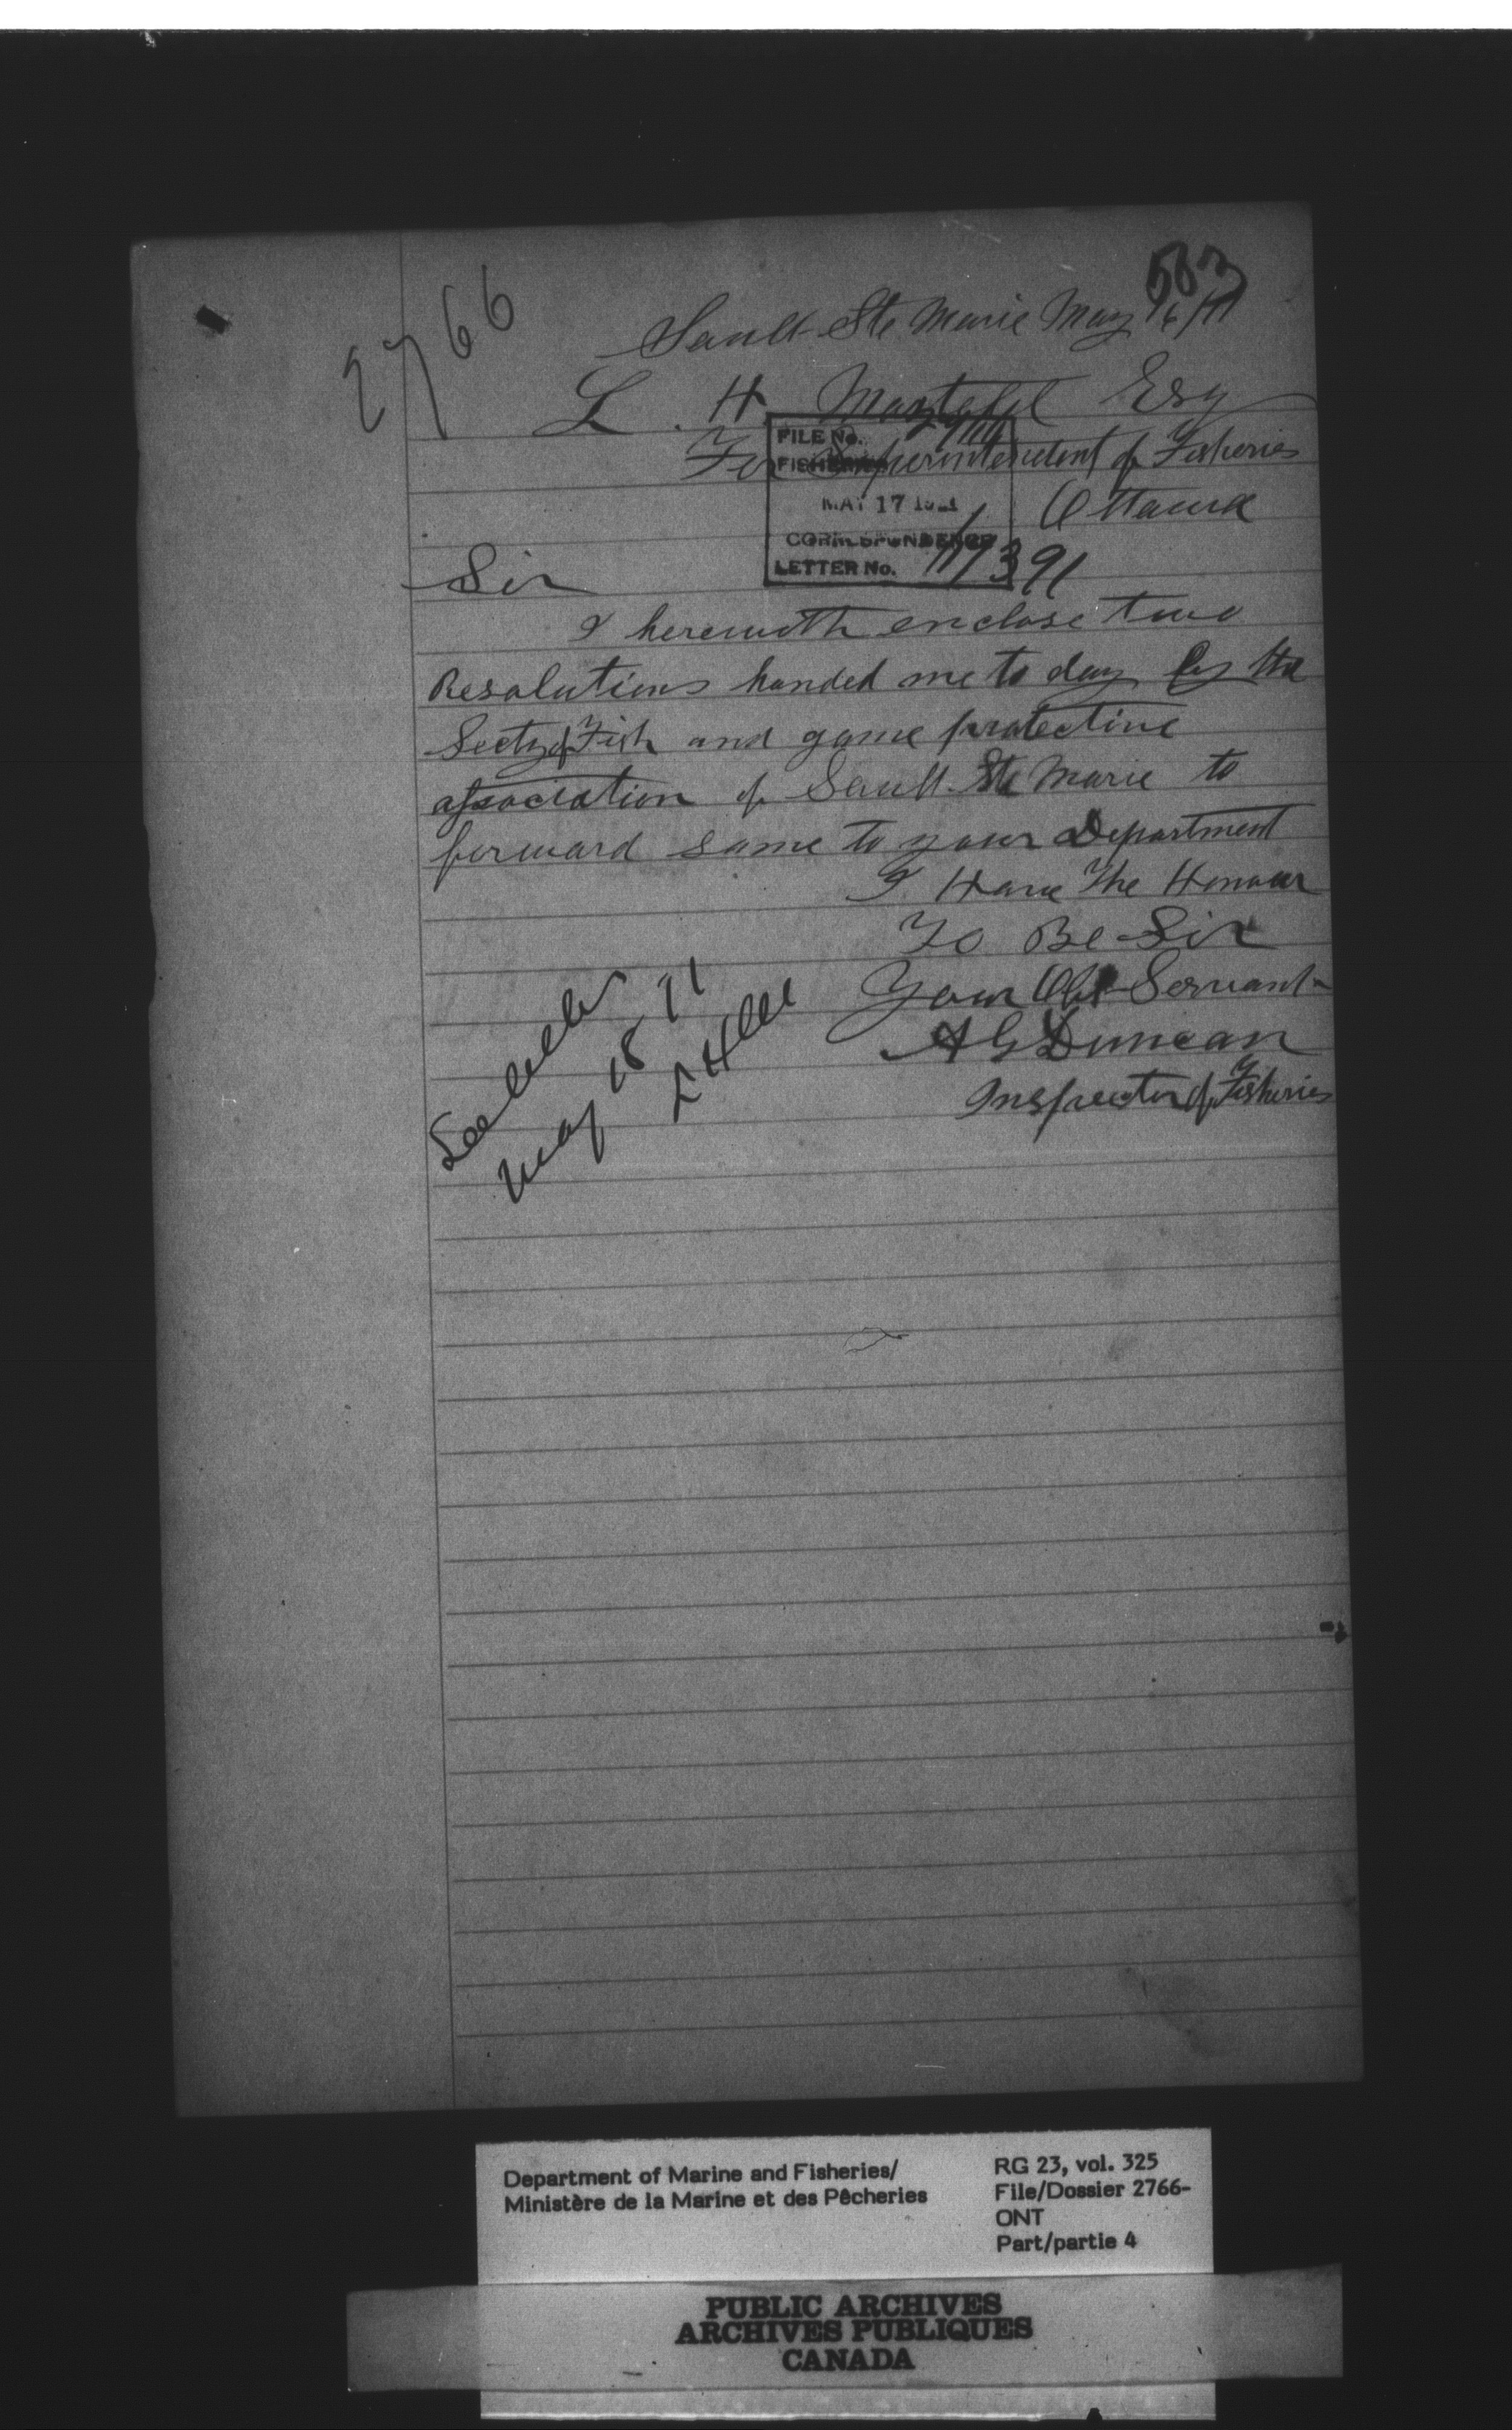 503
2766
Sault Ste Marie May 16/11
L. H. Esq
For Superintendent of Fisheries
Ottawa
FILE No.
FISHERIES
MAY 17
CORRESPONDENCE
LETTER No. 117391
Sir
I herewith enclose two
Resolutions handed me to day by the
Secty of Fish and game protective
association of Sault Ste Marie to
forward same to your Department
I Have The Honour
To Be Sir
Your Obt Servant
A G Duncan
Inspector of Fisheries
May 18 11
Department of Marine and Fisheries/
Ministère de la Marine et des Pêcheries
RG 23, vol. 325
File/Dossier 2766-
ONT
Part/partie 4
PUBLIC ARCHIVES
ARCHIVES PUBLIQUES
CANADA